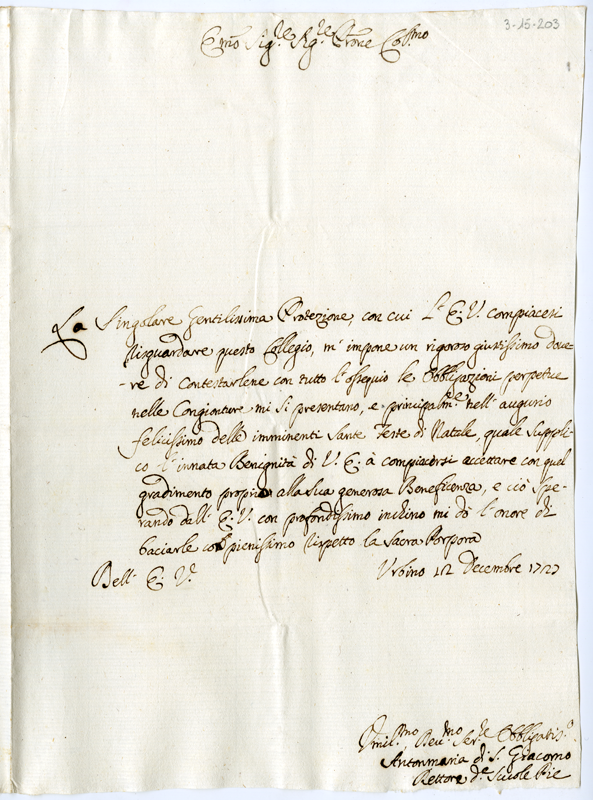 3-15-203
E.mo Sig.re Sig.re P.rone Col.mo
La Singolare Gentilissima Protezione, con cui L'E: V. compiacesi
risguardare questo Collegio, m'impone un rigoroso giustissimo dove
-re di contestarlene con tutto l'ossequio le Obbligazioni perpetue
nelle Congionture mi si presentano, e principalm.te nell'augurio
felicissimo delle imminenti Sante Feste di Natale, quale suppli-
co l'innata Benignità di V. E. à compiacersi accettare con quel
gradimento proprio alla sua generosa Beneficenza, e ciò spe-
rando dall'E: V. con profondissimo inchino mi dò l'onore di
baciarle col pienissimo rispetto la Sacra Porpora
Dell' E: V.
Urbino 12 Decembre 1727
Umil.mo Dev.mo Ser.re Obbligatis.o
Antonmaria di S. Giacomo
Rettore d.e Scuole Pie